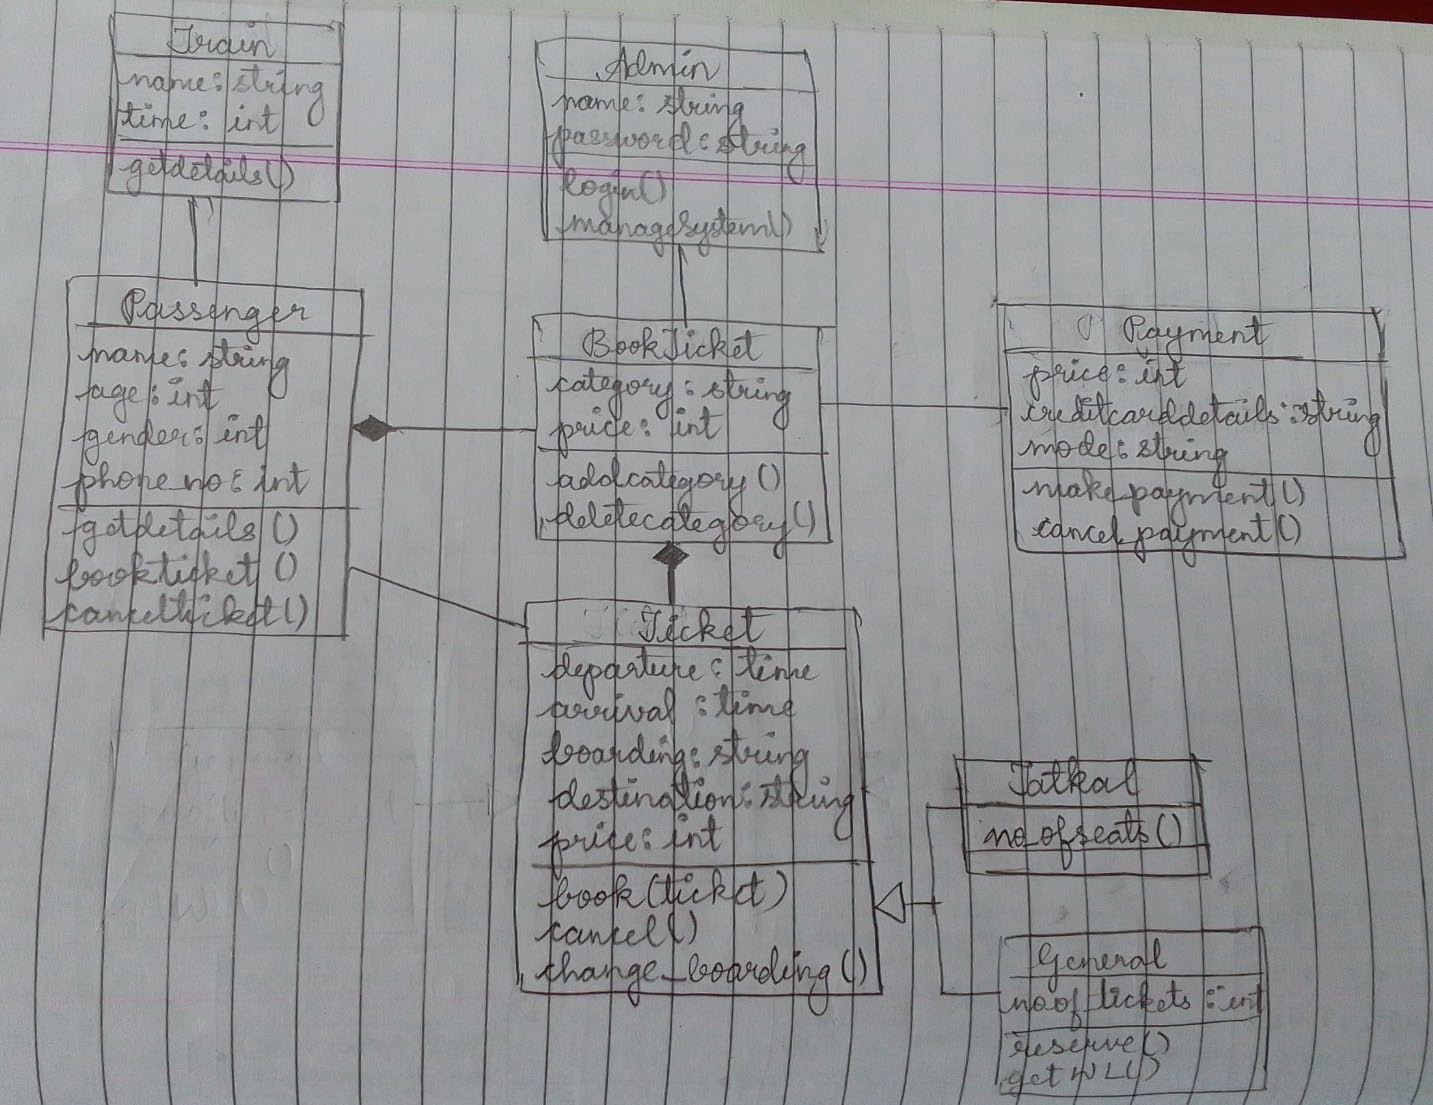 Train
name: string
time: int
getdetails()
Admin
name: string
password: string
login()
managesystem()
Passenger
name: string
age: int
gender: int
phone_no: int
getdetails()
bookticket()
cancelticket()
BookTicket
category: string
price: int
addcategory()
deletecategory()
Payment
price: int
creditcarddetails: string
mode: string
make_payment()
cancel_payment()
Ticket
departure: time
arrival: time
boarding: string
destination: string
price: int
book(ticket)
cancel()
change_boarding()
Tatkal
no_ofseats()
General
no of tickets: int
reserve()